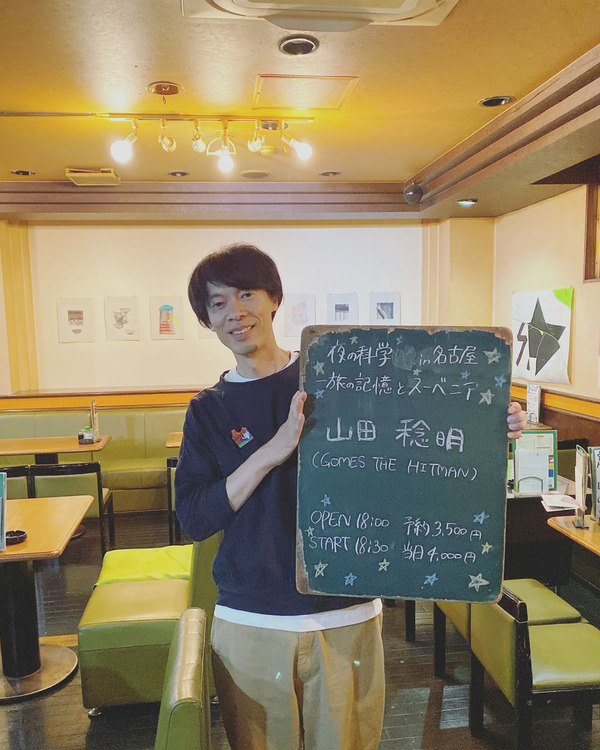 夜の科学 in 名古屋
－旅の記憶とスーベニア
山田 稔明
(GOMES THE HITMAN)
OPEN 18:00 予約 3,500円
START 18:30 当日 4,000円